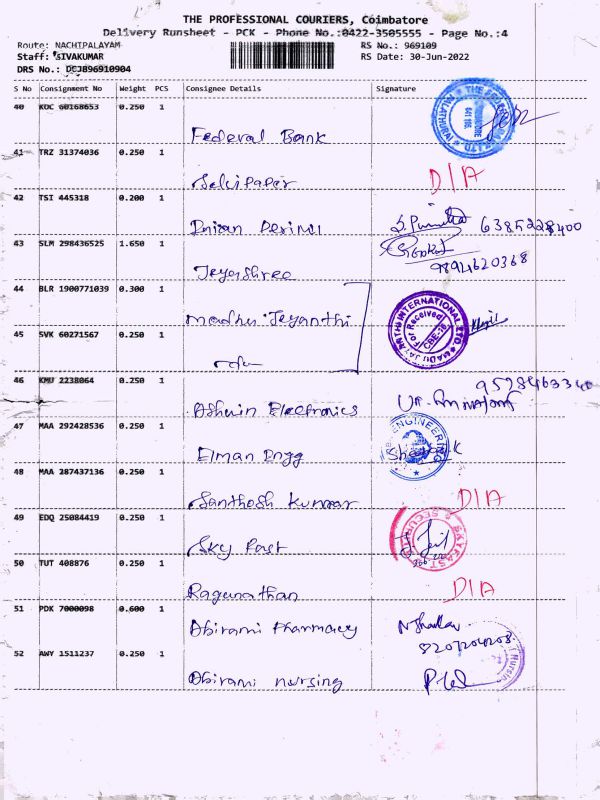 THE PROFESSIONAL COURIERS, Coimbatore
Delivery Runsheet - PCK - Phone No.:0422-3505555 - Page No.:4
Route: NACHIPALAYAM RS No.: 969109
Staff: SIVAKUMAR RS Date: 30-Jun-2022
DRS No.: DCJ896910904
S No Consignment No Weight PCS Consignee Details Signature
40 KDC 60168653 0.250 1
Federal Bank
41 TRZ 31374036 0.250 1
Selvi Paper D/A
42 TSI 445318 0.200 1
6385228400
43 SLM 298436525 1.650 1
Jeyashree 9894620368
44 BLR 1900771039 0.300 1
Madhu Jeyanthi
MADHU JAYANTHI INTERNATIONAL LTD.
For Received
CBE-18
45 SVK 60271567 0.250 1
46 KMU 2238064 0.250 1
9528463340
Ashwin Electronics
47 MAA 292428536 0.250 1
Elman Engg
ENGINEERING
48 MAA 287437136 0.250 1
Santhosh Kumar D/A
49 EDQ 25084419 0.250 1
Sky Fast
SKYFAST SECURITY
50 TUT 408876 0.250 1
Ragunathan D/A
51 PDK 7000098 0.600 1
Abirami Pharmacy
8207204203
52 AWY 1511237 0.250 1
Abirami nursing